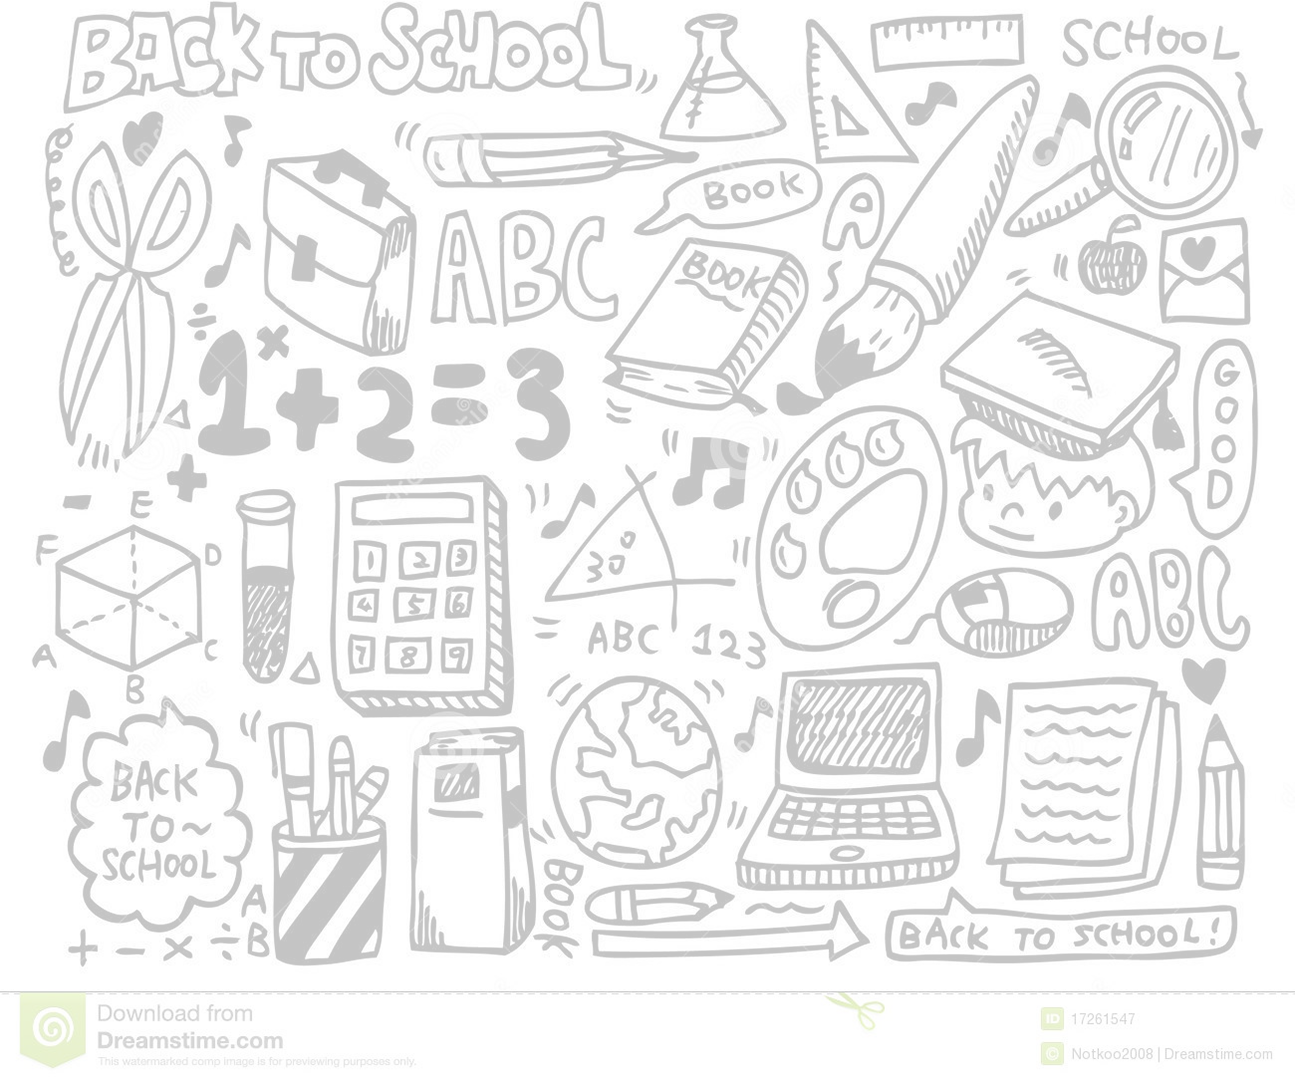 BACK TO SCHOOL
SCHOOL
BOOK
A
BOOK
ABC
÷ ×
1+2=3
GOOD
- +
E
F D
A C
B
1 2 3
4 5 6
7 8 9
30°
ABC 123
ABC
BACK
TO~
SCHOOL
A
B
BOOK
+ - × ÷
BACK TO SCHOOL!
Download from
Dreamstime.com
This watermarked comp image is for previewing purposes only.
ID 17261547
Notkoo2008 | Dreamstime.com